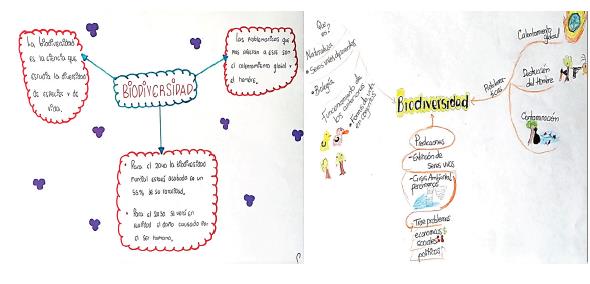 La biodiversidad
es la ciencia que
estudia la diversidad
de especies y de
vida.
BIODIVERSIDAD
Las problematicas que
mas afectan a este son
el calentamiento global y
el hombre.
• Para el 2040 la biodiversidad
mundial estará acabada en un
de su totalidad.
• Para el 2030 se verá en
realidad el daño causado por
el ser humano.
Que
es?
Naturaleza
• Seres vivos dependientes
• Biología
Funcionamiento de
los
• Formas de vida
en conjuntos
Biodiversidad
Problema-
ticas
Calentamiento
global
Destrucción
del Hombre
Contaminación
Predicciones
- Extinción de
Seres vivos
- Crisis Ambiental
fenómenos
- Trae problemas
economicos
sociales
politicos